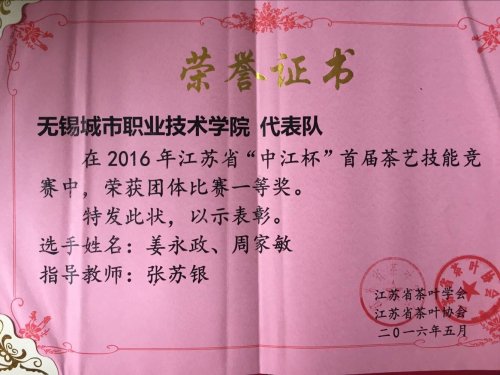 荣誉证书
无锡城市职业技术学院 代表队
在2016年江苏省“中江杯”首届茶艺技能竞
赛中，荣获团体比赛一等奖。
特发此状，以示表彰。
选手姓名：姜永政、周家敏
指导教师：张苏银
江苏省茶叶学会
江苏省茶叶协会
二〇一六年五月